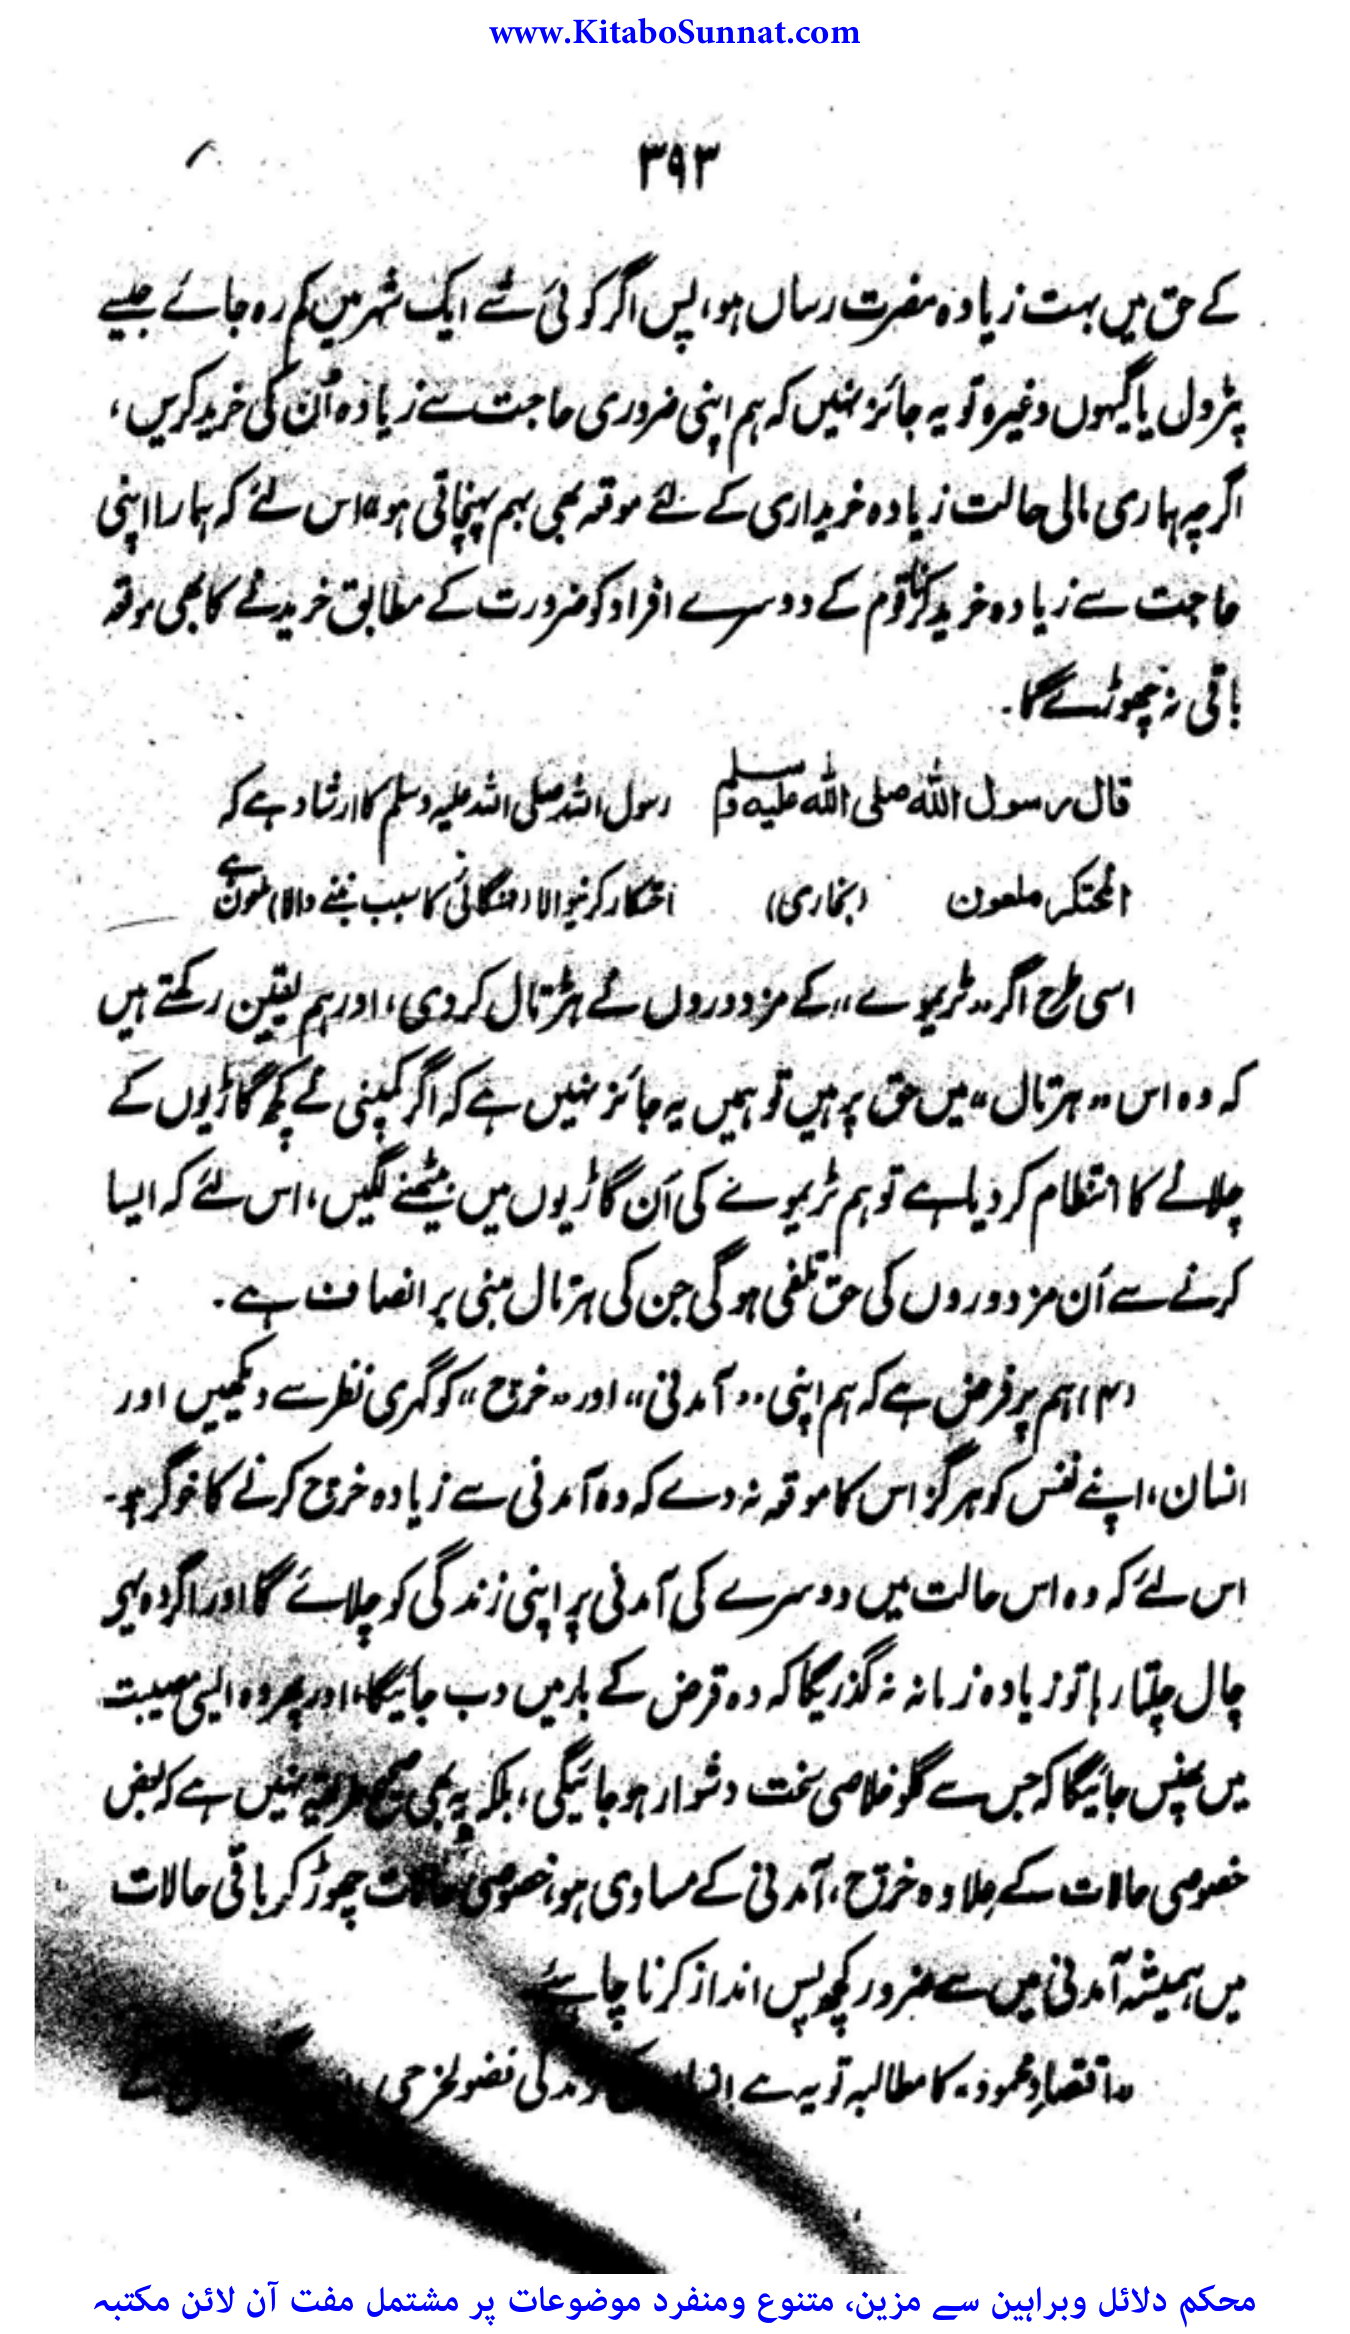 www.KitaboSunnat.com
۳۹۳
کے حق میں بہت زیادہ مضرت رساں ہو، پس اگر کوئی شے ایک شہر میں کم رہ جائے جیسے
پٹرول یا گیہوں وغیرہ تو یہ جائز نہیں کہ ہم اپنی ضروری حاجت سے زیادہ اُن کی خرید کریں،
اگرچہ ہماری مالی حالت زیادہ خریداری کے لئے موقعہ بھی بہم پہنچاتی ہو" اس لئے کہ ہمارا اپنی
حاجت سے زیادہ خرید کرنا قوم کے دوسرے افراد کو ضرورت کے مطابق خریدنے کا بھی موقعہ
باقی نہ چھوڑے گا۔
قال رسول الله صلی الله علیه وسلم رسول اللہ صلی اللہ علیہ وسلم کا ارشاد ہے کہ
المحتکر ملعون (بخاری) احتکار کرنیوالا (مہنگائی کا سبب بننے والا) ملعون ہے
اسی طرح اگر "ٹریموے" کے مزدوروں نے ہڑتال کردی، اور ہم یقین رکھتے ہیں
کہ وہ اس "ہرتال" میں حق پر ہیں تو ہمیں یہ جائز نہیں ہے کہ اگر کمپنی نے کچھ گاڑیوں کے
چلانے کا انتظام کردیا ہے تو ہم ٹریموے کی اُن گاڑیوں میں بیٹھنے لگیں، اس لئے کہ ایسا
کرنے سے اُن مزدوروں کی حق تلفی ہوگی جن کی ہرتال مبنی بر انصاف ہے۔
(۴) ہم پر فرض ہے کہ ہم اپنی "آمدنی" اور "خرچ" کو گہری نظر سے دیکھیں اور
انسان، اپنے نفس کو ہرگز اس کا موقعہ نہ دے کہ وہ آمدنی سے زیادہ خرچ کرنے کا خوگر ہو۔
اس لئے کہ وہ اس حالت میں دوسرے کی آمدنی پر اپنی زندگی کو چلائے گا اور اگر وہ یہی
چال چلتا رہا تو زیادہ زمانہ نہ گذریگا کہ وہ قرض کے بار میں دب جائیگا، اور پھر وہ ایسی مصیبت
میں پھنس جائیگا کہ جس سے گلو خلاصی سخت دشوار ہو جائیگی، بلکہ یہ بھی صحیح طریقہ نہیں ہے کہ بعض
خصوصی حالات کے علاوہ خرچ، آمدنی کے مساوی ہو، خصوصی حالات چھوڑ کر باقی حالات
میں ہمیشہ آمدنی میں سے ضرور کچھ پس انداز کرنا چاہیئے
"اقتصادِ محمود" کا مطالبہ تو یہ ہے فضولخرچی
محکم دلائل وبراہین سے مزین، متنوع ومنفرد موضوعات پر مشتمل مفت آن لائن مکتبہ